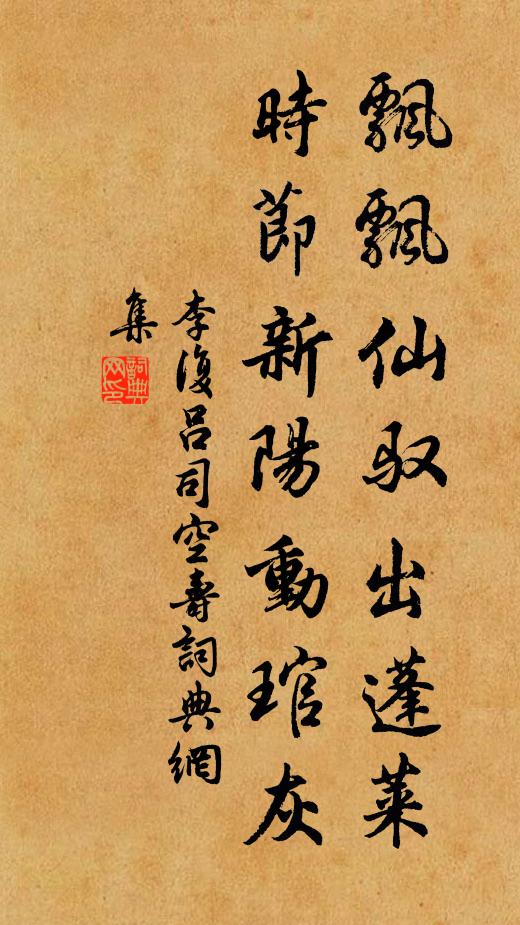 飄飄仙驭出蓬莱
時節新陽動琯灰
李復吕司空壽詞典網
集
詞典
网印